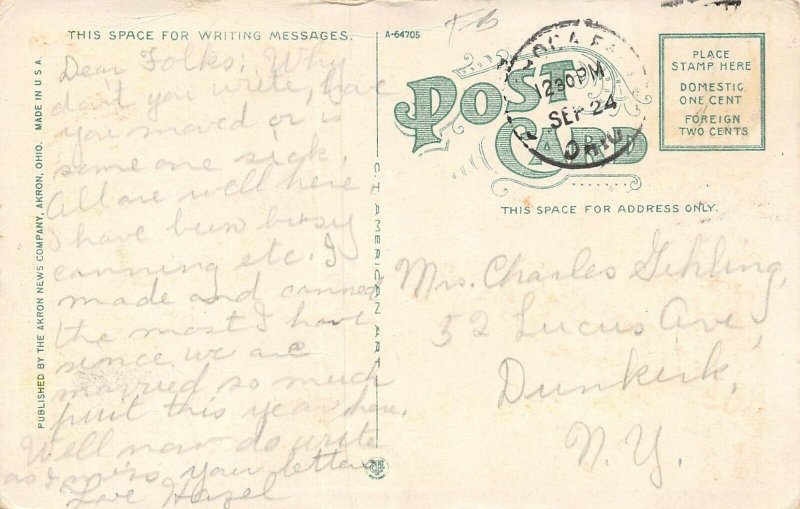 THIS SPACE FOR WRITING MESSAGES.
A-64705
Dear Folks; Why
don't you write, have
you moved or is
some one sick.
All are well here
I have been busy
canning etc. I
made and canned
the most I have
since we are
married so much
fruit this year here.
Well now do write
as I miss your letters
Love Hazel
PUBLISHED BY THE AKRON NEWS COMPANY, AKRON, OHIO. MADE IN U.S.A.
C T AMERICAN ART
POST CARD
1230PM
SEP 24
OHIO
PLACE
STAMP HERE
DOMESTIC
ONE CENT
FOREIGN
TWO CENTS
THIS SPACE FOR ADDRESS ONLY.
Mrs. Charles Gehling,
52 Lucus Ave,
Dunkirk,
N.Y.